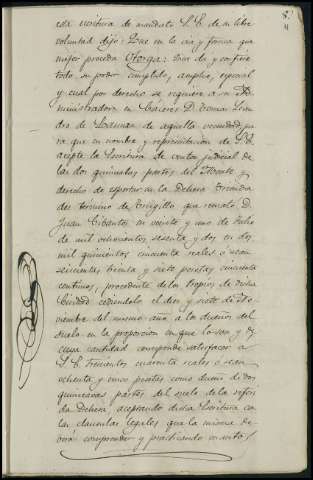 8.
esta escritura de mandato S. E. de su libre
voluntad dijo: Que en la via y forma que
mejor proceda Otorga: Que da y confiere
todo su poder cumplido, amplio, especial
y cual por derecho se requiere a su Ad-
ministrador en Cáceres D. Tomas
dro de de aquella vecindad, pa
ra que en nombre y representacion de S. E.
acepte la Escritura de venta judicial de
las dos quimientas partes del Monte y
derecho de apostar en la Dehesa
del término de Trujillo que remató D.
Juan Cibantos en veinte y uno de Julio
de mil ochocientos sesenta y dos en dos
mil quinientos cincuenta reales o sean
seiscientas treinta y siete pesetas cincuenta
centimos, procedente de los Propios de dicha
Ciudad cediendolo el diez y siete de No-
viembre del mismo año a los dueños del
suelo en la proporcion en que lo son y de
cuya cantidad corresponde satisfacer a
S. E. trescientos cuarenta reales o sean
ochenta y cinco pesetas como dueño di dos
quinceavas partes del suelo de la referi
da Dehesa, aceptando dicha Escritura con
las clausulas legales que la misma de-
verá comprender y practicando cuanto